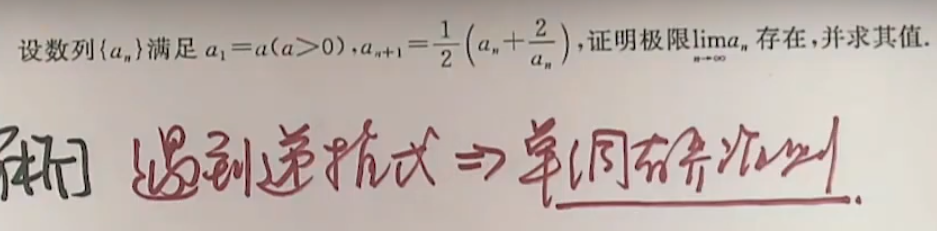 设数列{aₙ}满足 a₁=a(a>0),aₙ₊₁=1/2(aₙ+2/aₙ),证明极限lim(n→∞)aₙ 存在,并求其值.
[解析] 遇到递推式⇒单调有界准则.